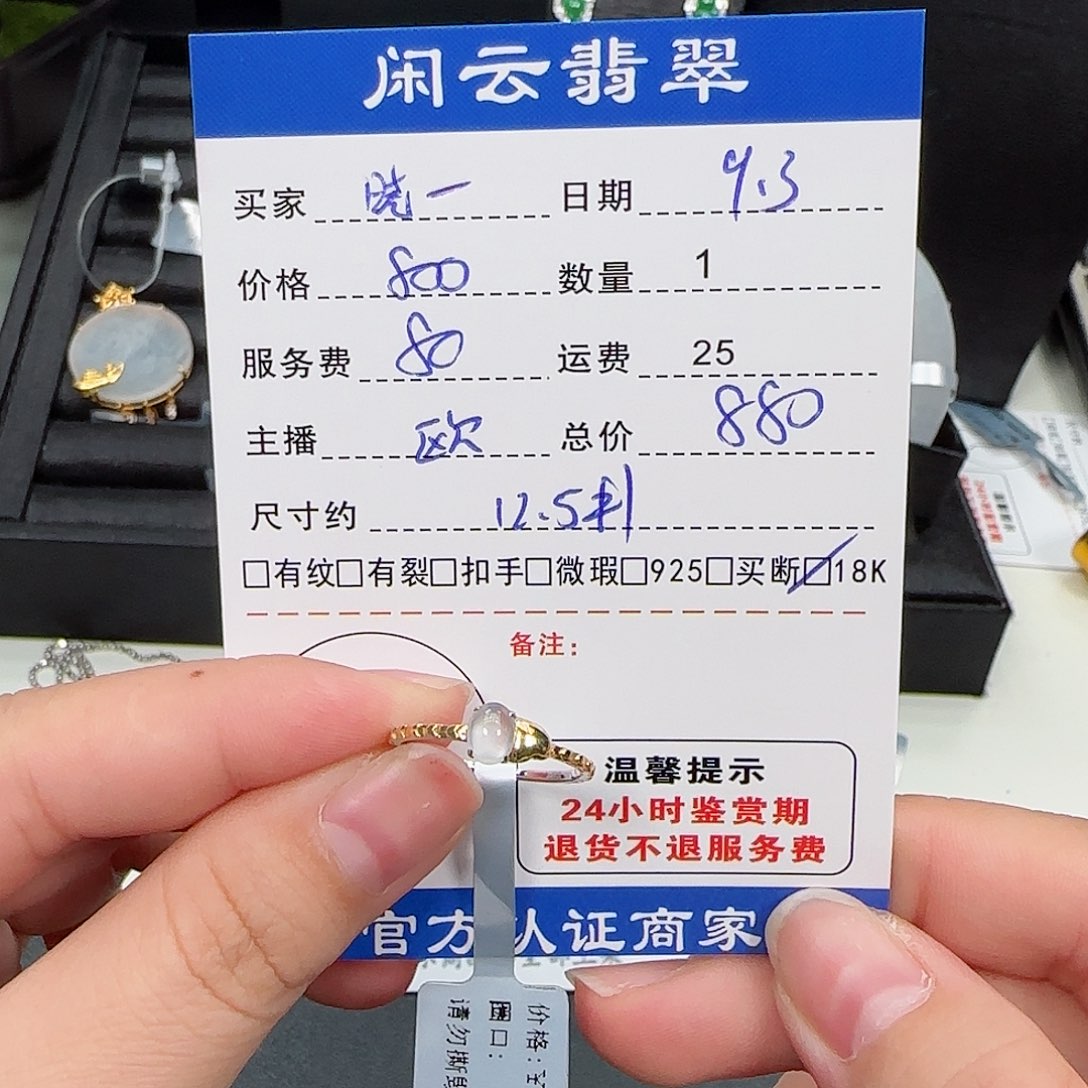 闲云翡翠
买家 晓一 日期 9.3
价格 800 数量 1
服务费 80 运费 25
主播 欧 总价 880
尺寸约 12.5利
□有纹□有裂□扣手□微瑕□925□买断☑18K
备注：
温馨提示
24小时鉴赏期
退货不退服务费
官方认证商家
价格：
圈口：
请勿撕